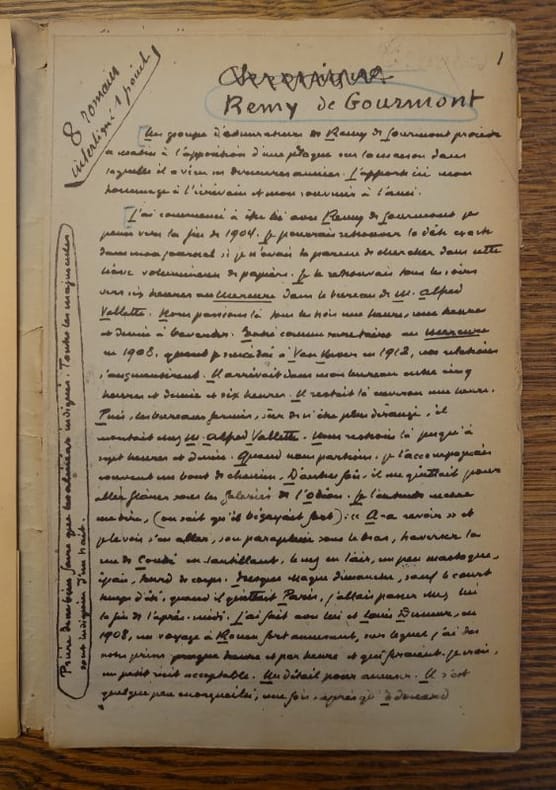 1
8 romain
interligné 1 point
Remy de Gourmont
Un groupe d'admirateurs de Remy de Gourmont
à l'apposition d'une plaque sur la maison dans
laquelle il a vécu ses dernières années. J'apporte ici mon
hommage à l'écrivain et mon souvenir à l'ami.
J'ai commencé à être lié avec Remy de Gourmont, je
pense vers la fin de 1904. Je pourrais retrouver la date exacte
dans mon journal si je n'avais la paresse de chercher dans cette
volumineux de papiers. Je le retrouvais tous les soirs
vers six heures au Mercure dans le bureau de M. Alfred
Vallette. Nous passions là tous les trois une heure, une heure
et demie à bavarder. Entré comme secrétaire au Mercure
en 1908, quand je succédai à Van Bever en 1912, nos relations
s'augmentèrent. Il arrivait dans mon bureau entre cinq
heures et demie et six heures. Il restait là environ une heure.
Puis, les bureaux fermés, sûr de n'être plus dérangé, il
montait chez M. Alfred Vallette. Nous restions là jusqu'à
sept heures et demie. Quand nous partions, je l'accompagnais
souvent un bout de chemin. D'autres fois, il me quittait pour
aller flâner sous les Galeries de l'Odéon. Je l'entends encore
me dire, (on sait qu'il bégayait fort) : « A-a revoir » et
je le vois s'en aller, son parapluie sous le bras, traverser la
rue de Condé en sautillant, le nez en l'air, un peu
épais, lourd de corps. Presque chaque dimanche, sauf le court
temps d'été, quand il quittait Paris, j'allais passer chez lui
la fin de l'après-midi. J'ai fait avec lui et Louis Dumur, en
1908, un voyage à Rouen fort amusant, sur lequel j'ai des
notes prises presque heure par heure et qui feraient, je crois,
un petit récit acceptable. Un détail pour amuser. Il s'est
quelque peu enorgueilli, une fois, après qu'
Prière de ne bien faire que les alinéas indiqués. Toutes les majuscules
sont indiquées d'un trait.